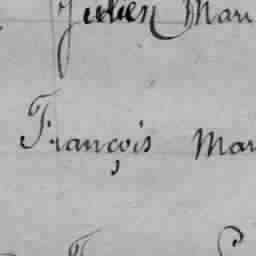 Julien Mari
François Mar